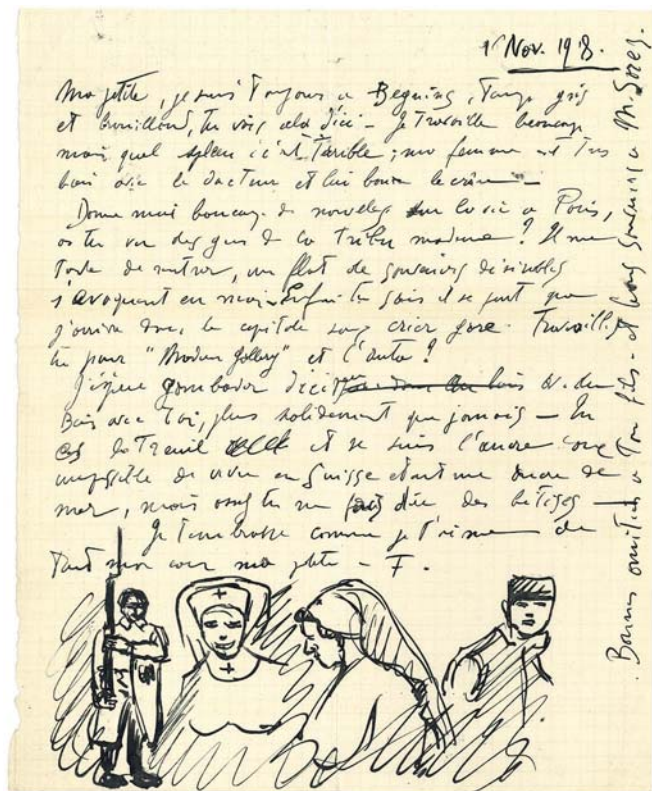 1 Nov. 1918.
Ma petite, je suis toujours a Begnins, temps gris
et brouillard, tu vois cela d'ici - Je travaille beaucoup
mais quel spleen ici c'est terrible ; ma femme est très
bien avec le docteur et lui bourre le crâne -
Donne moi beaucoup de nouvelles sur la vie a Paris,
as tu vu des gens de la tribu moderne? Il me
tarde de rentrer, un flot de souvenirs
s'évoquent en moi - Enfin tu sais il se peut que
j'arrive dans la capitale sans crier gare. Travailles
tu pour "Modern Gallery" et l'auto?
J'espère gambader d'ici peu au bois av. du
Bois avec toi, plus solidement que jamais - Tu
es le treuil et je suis l'ancre
impossible de vivre en Suisse étant une ancre de
mer, mais tu me dire des betises -
Je t'embrasse comme je t'aime de
tout mon cœur ma petite - F.
Bonnes amitiés a ton fils - et bons souvenirs a M.